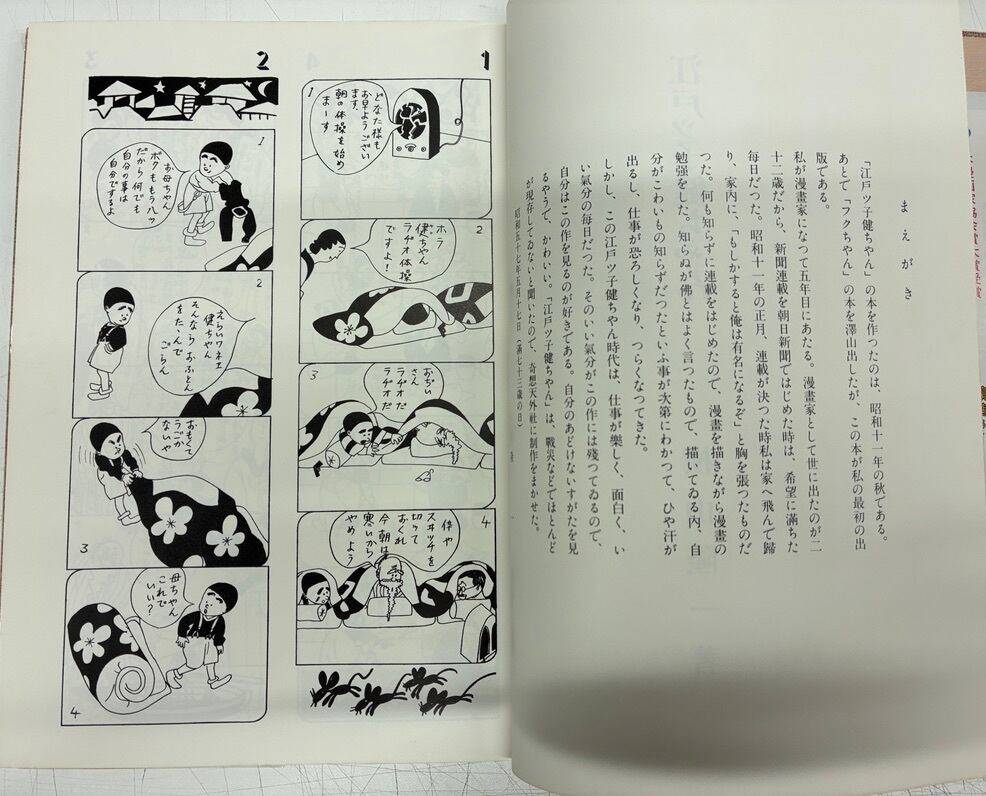 まえがき
「江戸ツ子健ちやん」の本を作つたのは、昭和十一年の秋である。
あとで「フクちやん」の本を澤山出したが、この本が私の最初の出
版である。
私が漫畫家になつて五年目にあたる。漫畫家として世に出たのが二
十二歳だから、新聞連載を朝日新聞ではじめた時は、希望に滿ちた
毎日だつた。昭和十一年の正月、連載が決つた時私は家へ飛んで歸
り、家內に、「もしかすると俺は有名になるぞ」と胸を張つたものだ
つた。何も知らずに連載をはじめたので、漫畫を描きながら漫畫の
勉强をした。知らぬが佛とはよく言つたもので、描いてゐる內、自
分がこわいもの知らずだつたといふ事が次第にわかつて、ひや汗が
出るし、仕事が恐ろしくなり、つらくなつてきた。
しかし、この江戸ツ子健ちやん時代は、仕事が樂しく、面白く、い
い氣分の毎日だつた。そのいい氣分がこの作には殘つてゐるので、
自分はこの作を見るのが好きである。自分のあどけないすがたを見
るやうで、かわいい。「江戸ツ子健ちやん」は、戰災などでほとんど
が現存してゐないと聞いたので、奇想天外社に制作をまかせた。
昭和五十七年五月十七日（滿七十三歳の日）
1
1
どなた様も
お早ようござい
ます、
朝の体操を始め
まーす
2
ホラ
健ちゃん
ラヂオ体操
ですよ！
3
おぢい
さん
ラヂオだ
ラヂオだ
4
伜や
スヰッチを
切って
おくれ
今朝は
寒いから
やめよう
2
1
お母ちゃん
ボクももう八ッ
だから何でも
自分の事は
自分でするよ
2
えらいワネエ
健ちゃん
そんなら おふとん
をたゝんで
ごらん
3
おもくて
うごか
ないや
4
母ちゃん
これで
いい？